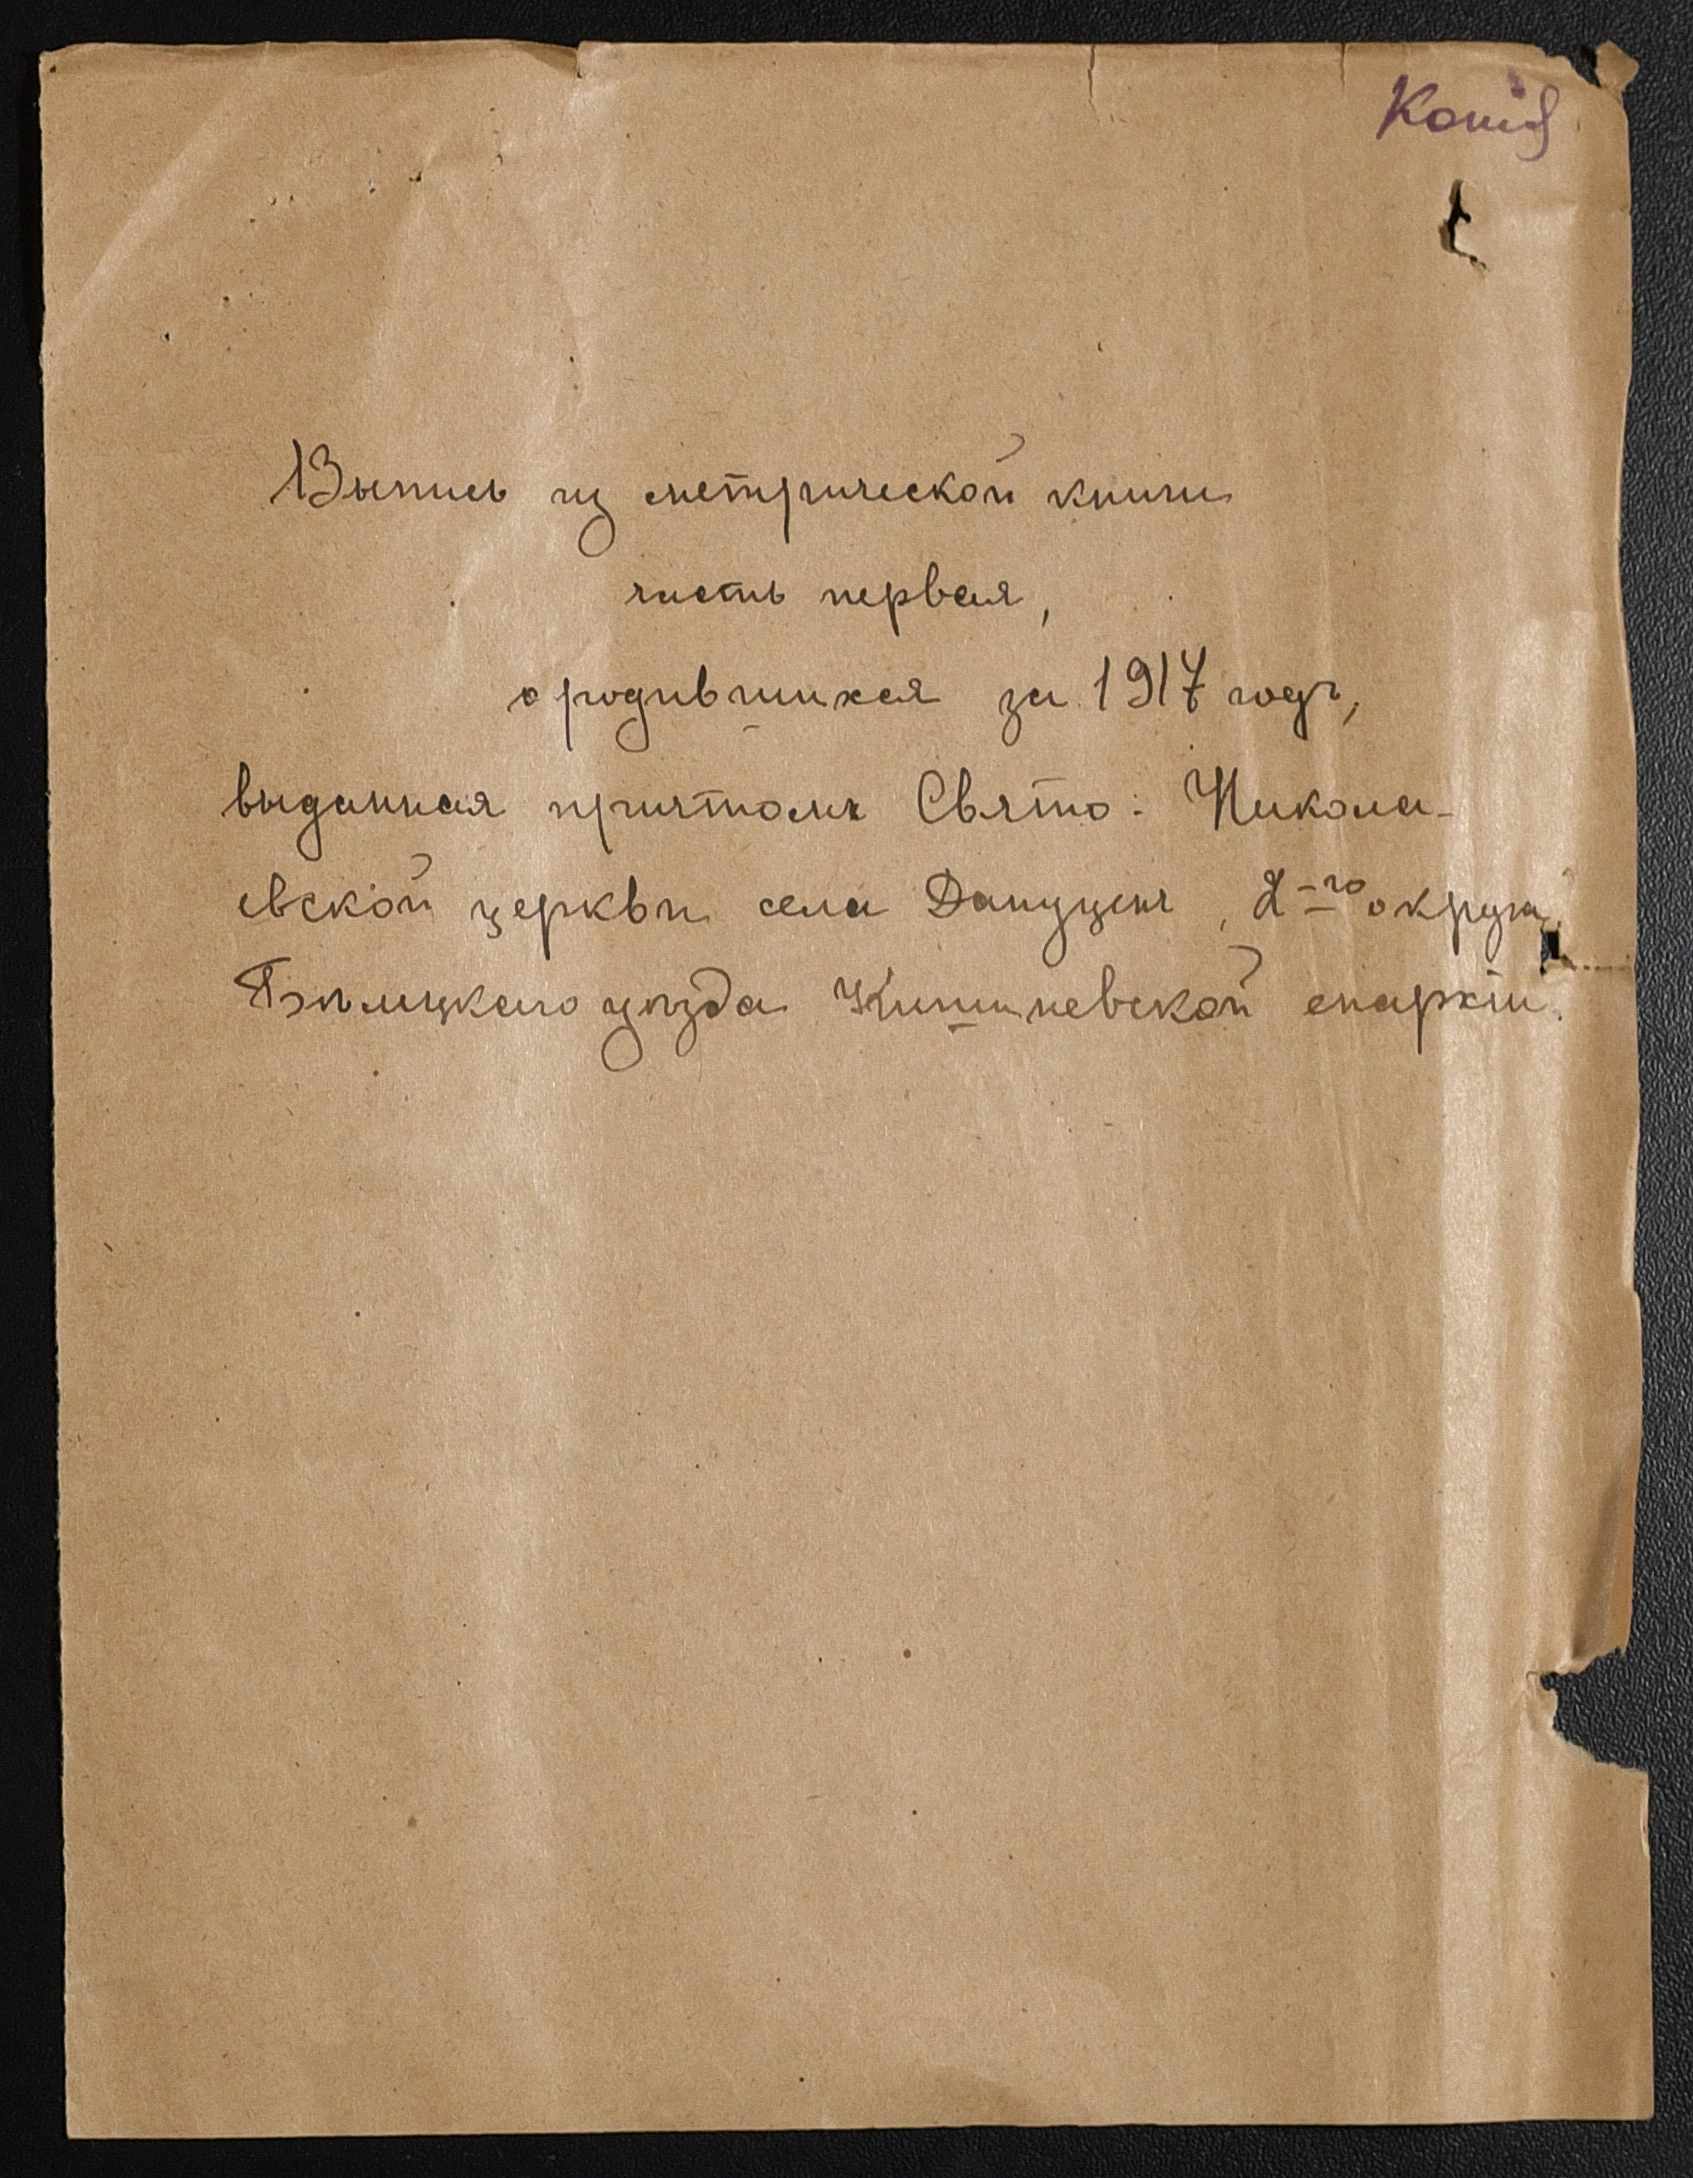 Копія
Выпись из метрической книги
часть первая,
о родившихся за 1917 годъ,
выданная причтомъ Свято: Никола-
евской церкви села Дануценъ, 2-го округа
Бѣлецкаго уѣзда Кишиневской епархіи.